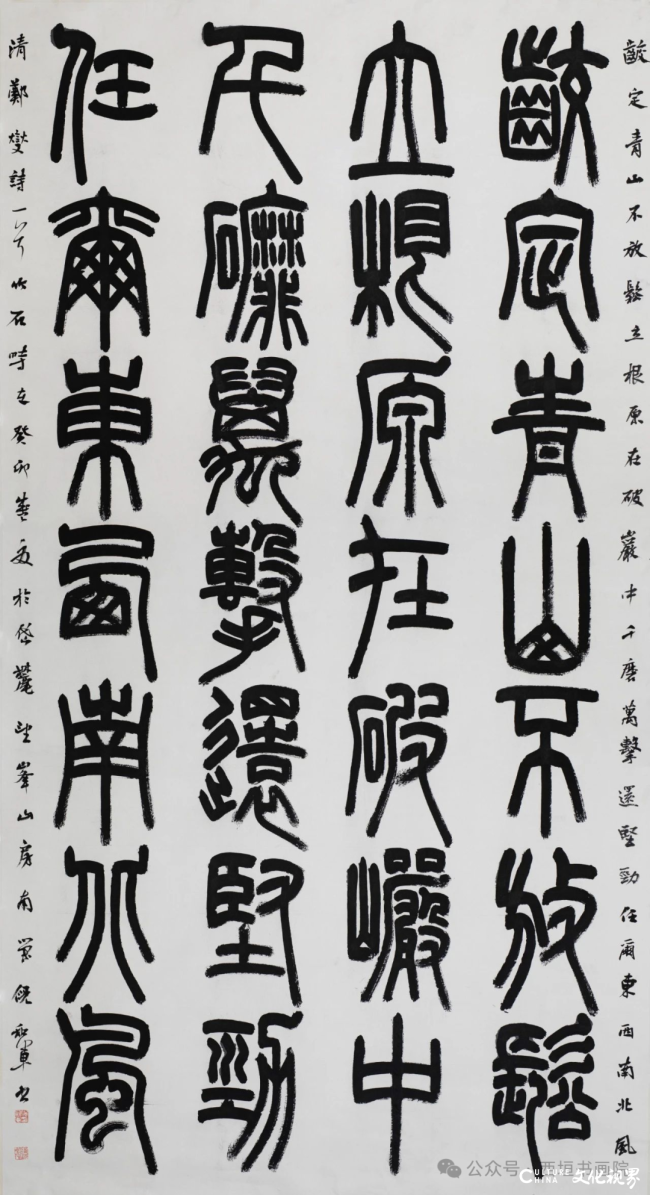 齩定青山不放鬆立根原在破巖中千磨萬擊還堅勁任爾東西南北風
齩定青山不放鬆
立根原在破巖中
千磨萬擊還堅勁
任爾東西南北風
清鄭燮詩一首竹石時在癸卯春夏於岱麓峯山房南窗倪和軍書
公众号 西垣书画院
CULTURE CHINA 文化视界